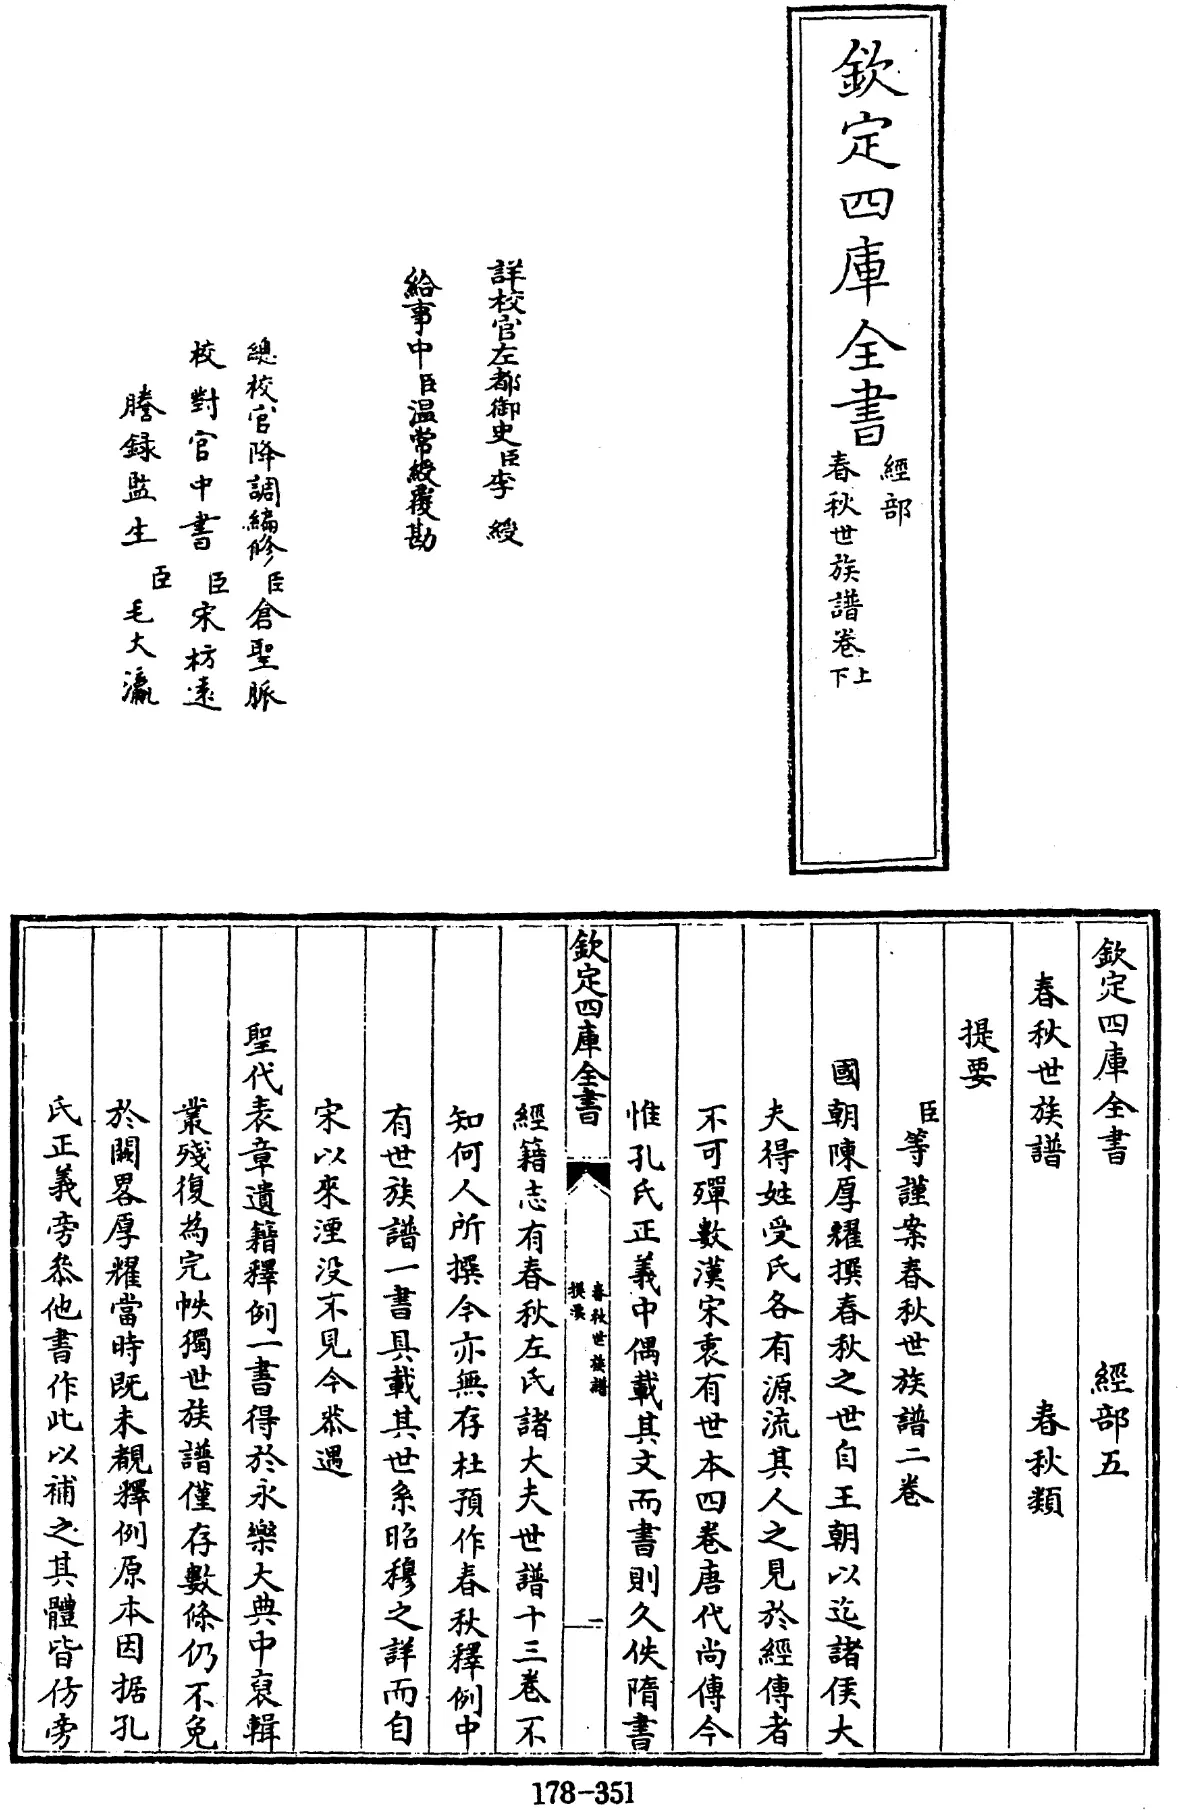 欽定四庫全書
經部
春秋世族譜卷上
下
詳校官左都御史臣李綬
給事中臣温常綬覆勘
總校官降調編修臣倉聖脈
校對官中書臣宋枋遠
謄錄監生臣毛大瀛
欽定四庫全書 經部五
春秋世族譜 春秋類
提要
臣等謹案春秋世族譜二卷
國朝陳厚耀撰春秋之世自王朝以迄諸侯大
夫得姓受氏各有源流其人之見於經傳者
不可殫數漢宋衷有世本四卷唐代尚傳今
惟孔氏正義中偶載其文而書則久佚隋書
欽定四庫全書
春秋世族譜
提要
一
經籍志有春秋左氏諸大夫世譜十三卷不
知何人所撰今亦無存杜預作春秋釋例中
有世族譜一書具載其世系昭穆之詳而自
宋以來湮没不見今恭遇
聖代表章遺籍釋例一書得於永樂大典中裒輯
叢殘復為完帙獨世族譜僅存數條仍不免
於闕畧厚耀當時既未覩釋例原本因据孔
氏正義旁叅他書作此以補之其體皆仿旁
178-351